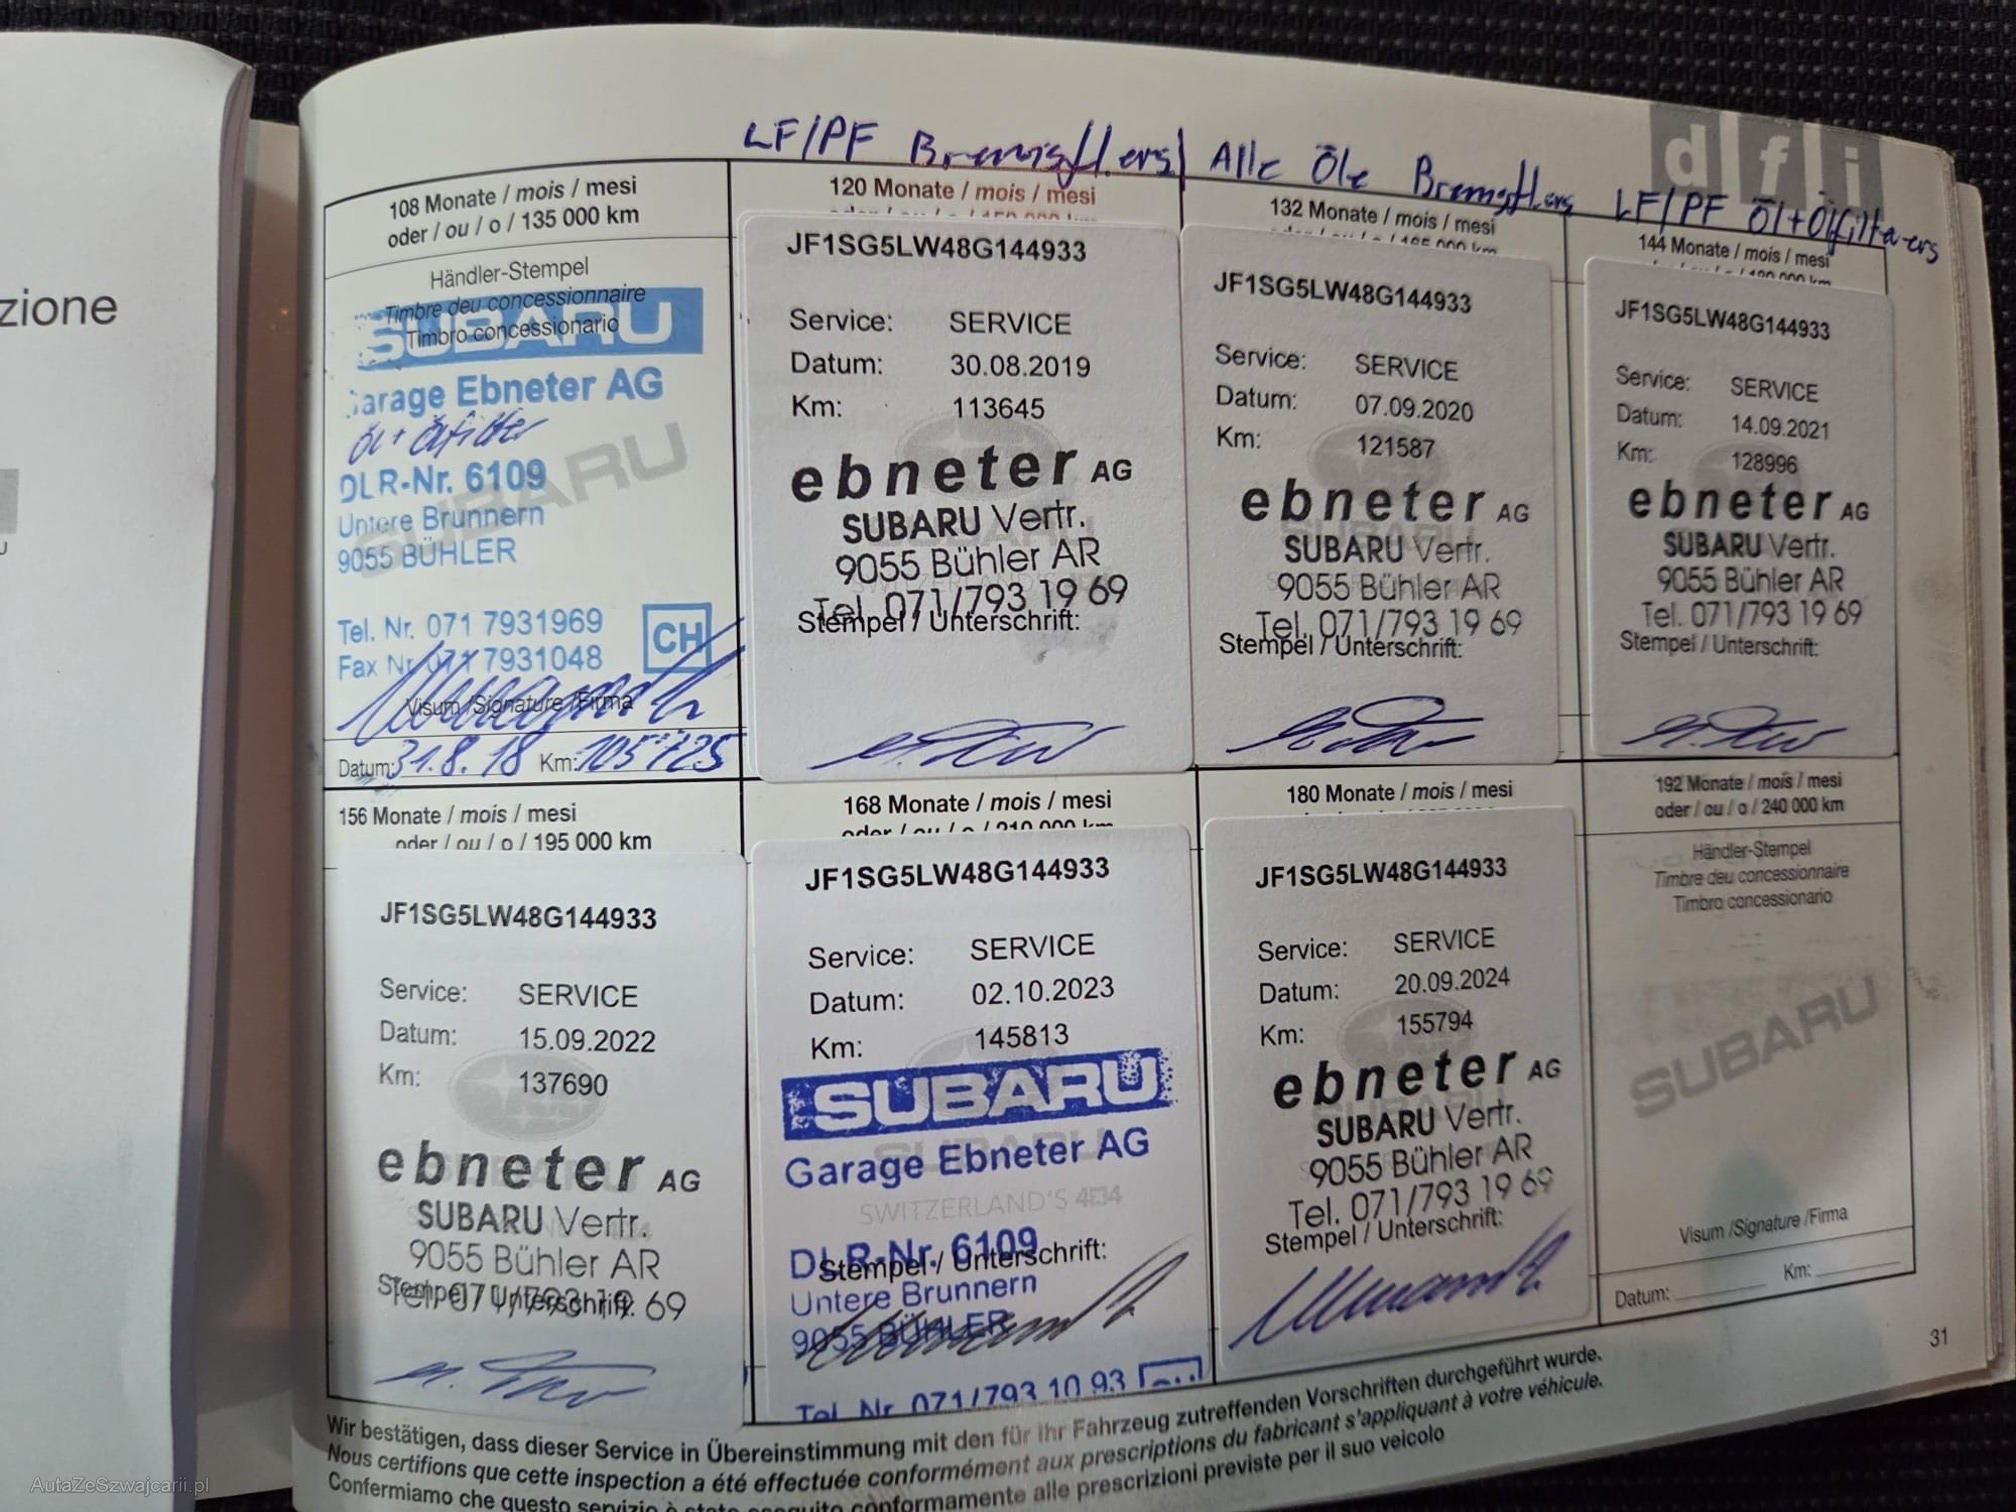 zione
d f i
LF/PF Bremsfl. ers) Alle Öle Bremsfl. ers LF/PF Öl+Ölfilter ers
108 Monate / mois / mesi
oder / ou / o / 135 000 km
Händler-Stempel
Timbre deu concessionnaire
Timbro concessionario
SUBARU
Garage Ebneter AG
Öl + Ölfilter
DLR-Nr. 6109
Untere Brunnern
9055 BÜHLER
SUBARU
Tel. Nr. 071 7931969
Fax Nr. 071 7931048
CH
Visum /Signature /Firma
Datum: 31.8.18 Km: 105'725
120 Monate / mois / mesi
JF1SG5LW48G144933
Service: SERVICE
Datum: 30.08.2019
Km: 113645
ebneter AG
SUBARU Vertr.
9055 Bühler AR
Tel. 071/793 19 69
Stempel / Unterschrift:
132 Monate / mois / mesi
JF1SG5LW48G144933
Service: SERVICE
Datum: 07.09.2020
Km: 121587
ebneter AG
SUBARU Vertr.
9055 Bühler AR
Tel. 071/793 19 69
Stempel / Unterschrift:
144 Monate / mois / mesi
JF1SG5LW48G144933
Service: SERVICE
Datum: 14.09.2021
Km: 128996
ebneter AG
SUBARU Vertr.
9055 Bühler AR
Tel. 071/793 19 69
Stempel / Unterschrift:
156 Monate / mois / mesi
oder / ou / o / 195 000 km
JF1SG5LW48G144933
Service: SERVICE
Datum: 15.09.2022
Km: 137690
ebneter AG
SUBARU Vertr.
9055 Bühler AR
Tel. 071/793 19 69
Stempel / Unterschrift:
168 Monate / mois / mesi
oder / ou / o / 210 000 km
JF1SG5LW48G144933
Service: SERVICE
Datum: 02.10.2023
Km: 145813
SUBARU
Garage Ebneter AG
SWITZERLAND'S 4x4
DLR-Nr. 6109
Stempel / Unterschrift:
Untere Brunnern
9055 BÜHLER
Tel. Nr. 071/793 10 93
180 Monate / mois / mesi
JF1SG5LW48G144933
Service: SERVICE
Datum: 20.09.2024
Km: 155794
ebneter AG
SUBARU Vertr.
9055 Bühler AR
Tel. 071/793 19 69
Stempel / Unterschrift:
192 Monate / mois / mesi
oder / ou / o / 240 000 km
Händler-Stempel
Timbre deu concessionnaire
Timbro concessionario
SUBARU
Visum /Signature /Firma
Datum: Km:
31
Wir bestätigen, dass dieser Service in Übereinstimmung mit den für Ihr Fahrzeug zutreffenden Vorschriften durchgeführt wurde.
Nous certifions que cette inspection a été effectuée conformément aux prescriptions du fabricant s'appliquant à votre véhicule.
Confermiamo che questo servizio è stato eseguito conformamente alle prescrizioni previste per il suo veicolo
AutaZeSzwajcarii.pl